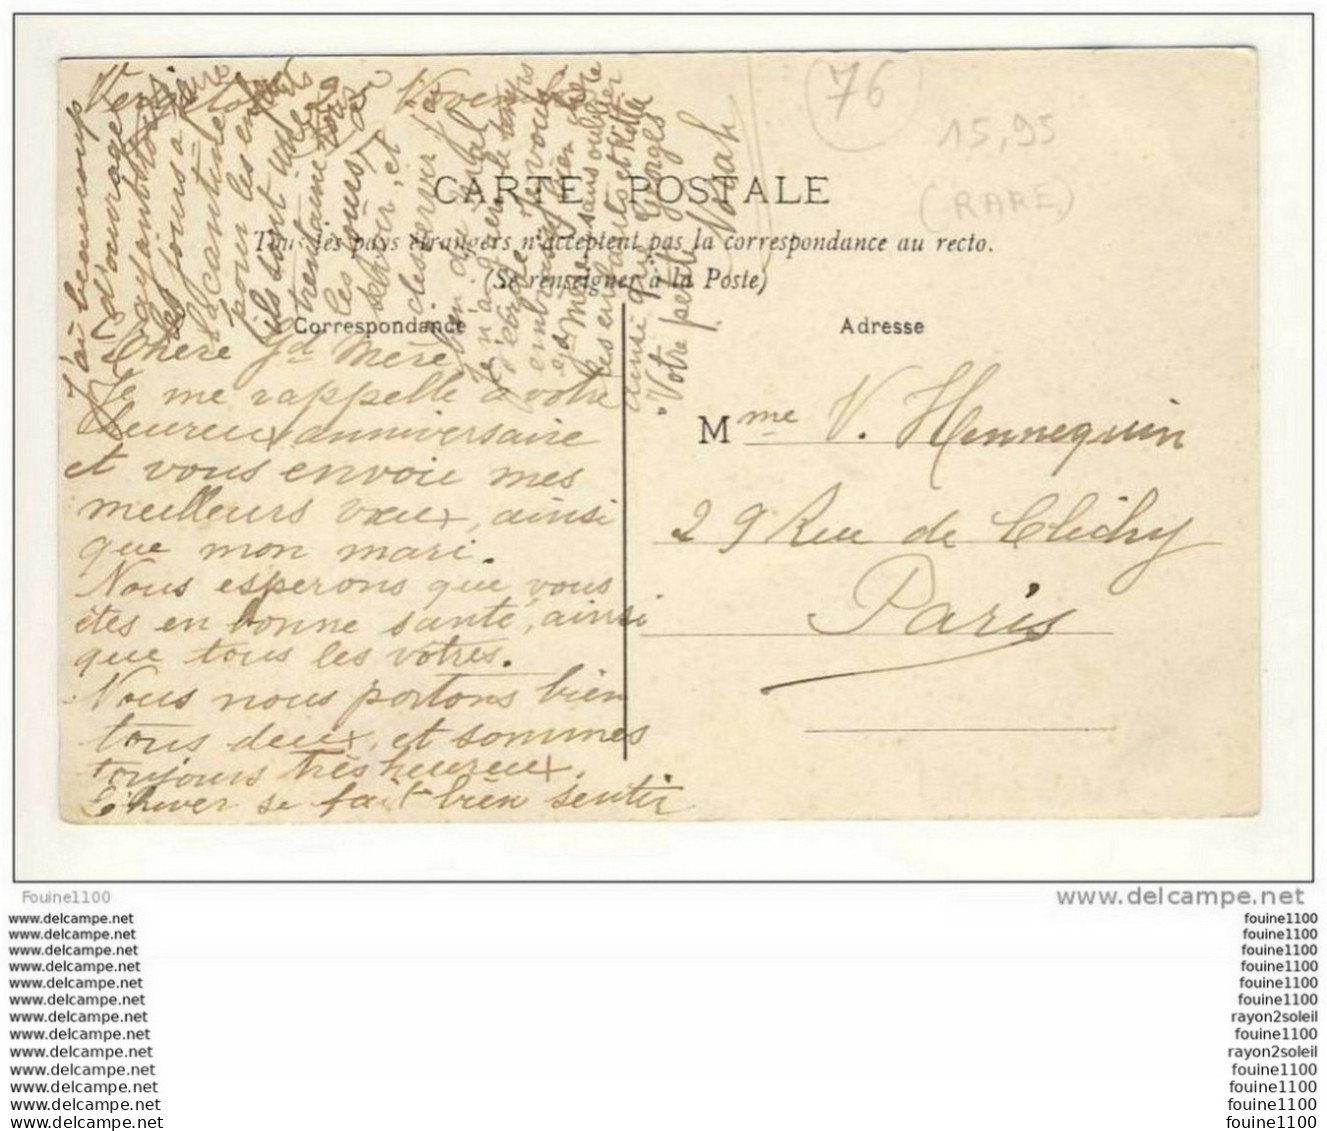 76
15,95
(RARE)
CARTE POSTALE
Tous les pays étrangers n'acceptent pas la correspondance au recto.
(Se renseigner à la Poste)
Correspondance
Adresse
Chère Gd Mère
Je me rappelle à votre
heureux anniversaire
et vous envoie mes
meilleurs vœux, ainsi
que mon mari.
Nous esperons que vous
êtes en bonne santé, ainsi
que tous les votres.
Nous nous portons bien
tous deux, et sommes
toujours très heureux.
L'hiver se fait bien sentir
J'ai beaucoup
d'ouvrage
ayant tous
les jours la
la cantine
pour les enfants
ils sont
trentaine
les
servir, et
desservir j'ai
bien du mal
je n'ai guère le temps
d'écrire. Je vous
embrasse bien chère
gd mère sans oublier
les enfants et
ainsi que Georges
Votre petite Norah
Mme V. Hennequin
29 Rue de Clichy
Paris
Fouine1100
www.delcampe.net
www.delcampe.net
www.delcampe.net
www.delcampe.net
www.delcampe.net
www.delcampe.net
www.delcampe.net
www.delcampe.net
www.delcampe.net
www.delcampe.net
www.delcampe.net
www.delcampe.net
www.delcampe.net
www.delcampe.net
fouine1100
fouine1100
fouine1100
fouine1100
fouine1100
fouine1100
rayon2soleil
fouine1100
rayon2soleil
fouine1100
fouine1100
fouine1100
fouine1100